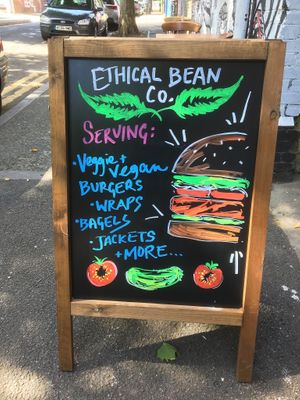 ETHICAL BEAN
Co.
SERVING:
• Veggie +
Vegan
BURGERS
• WRAPS
• BAGELS
• JACKETS
+ MORE...